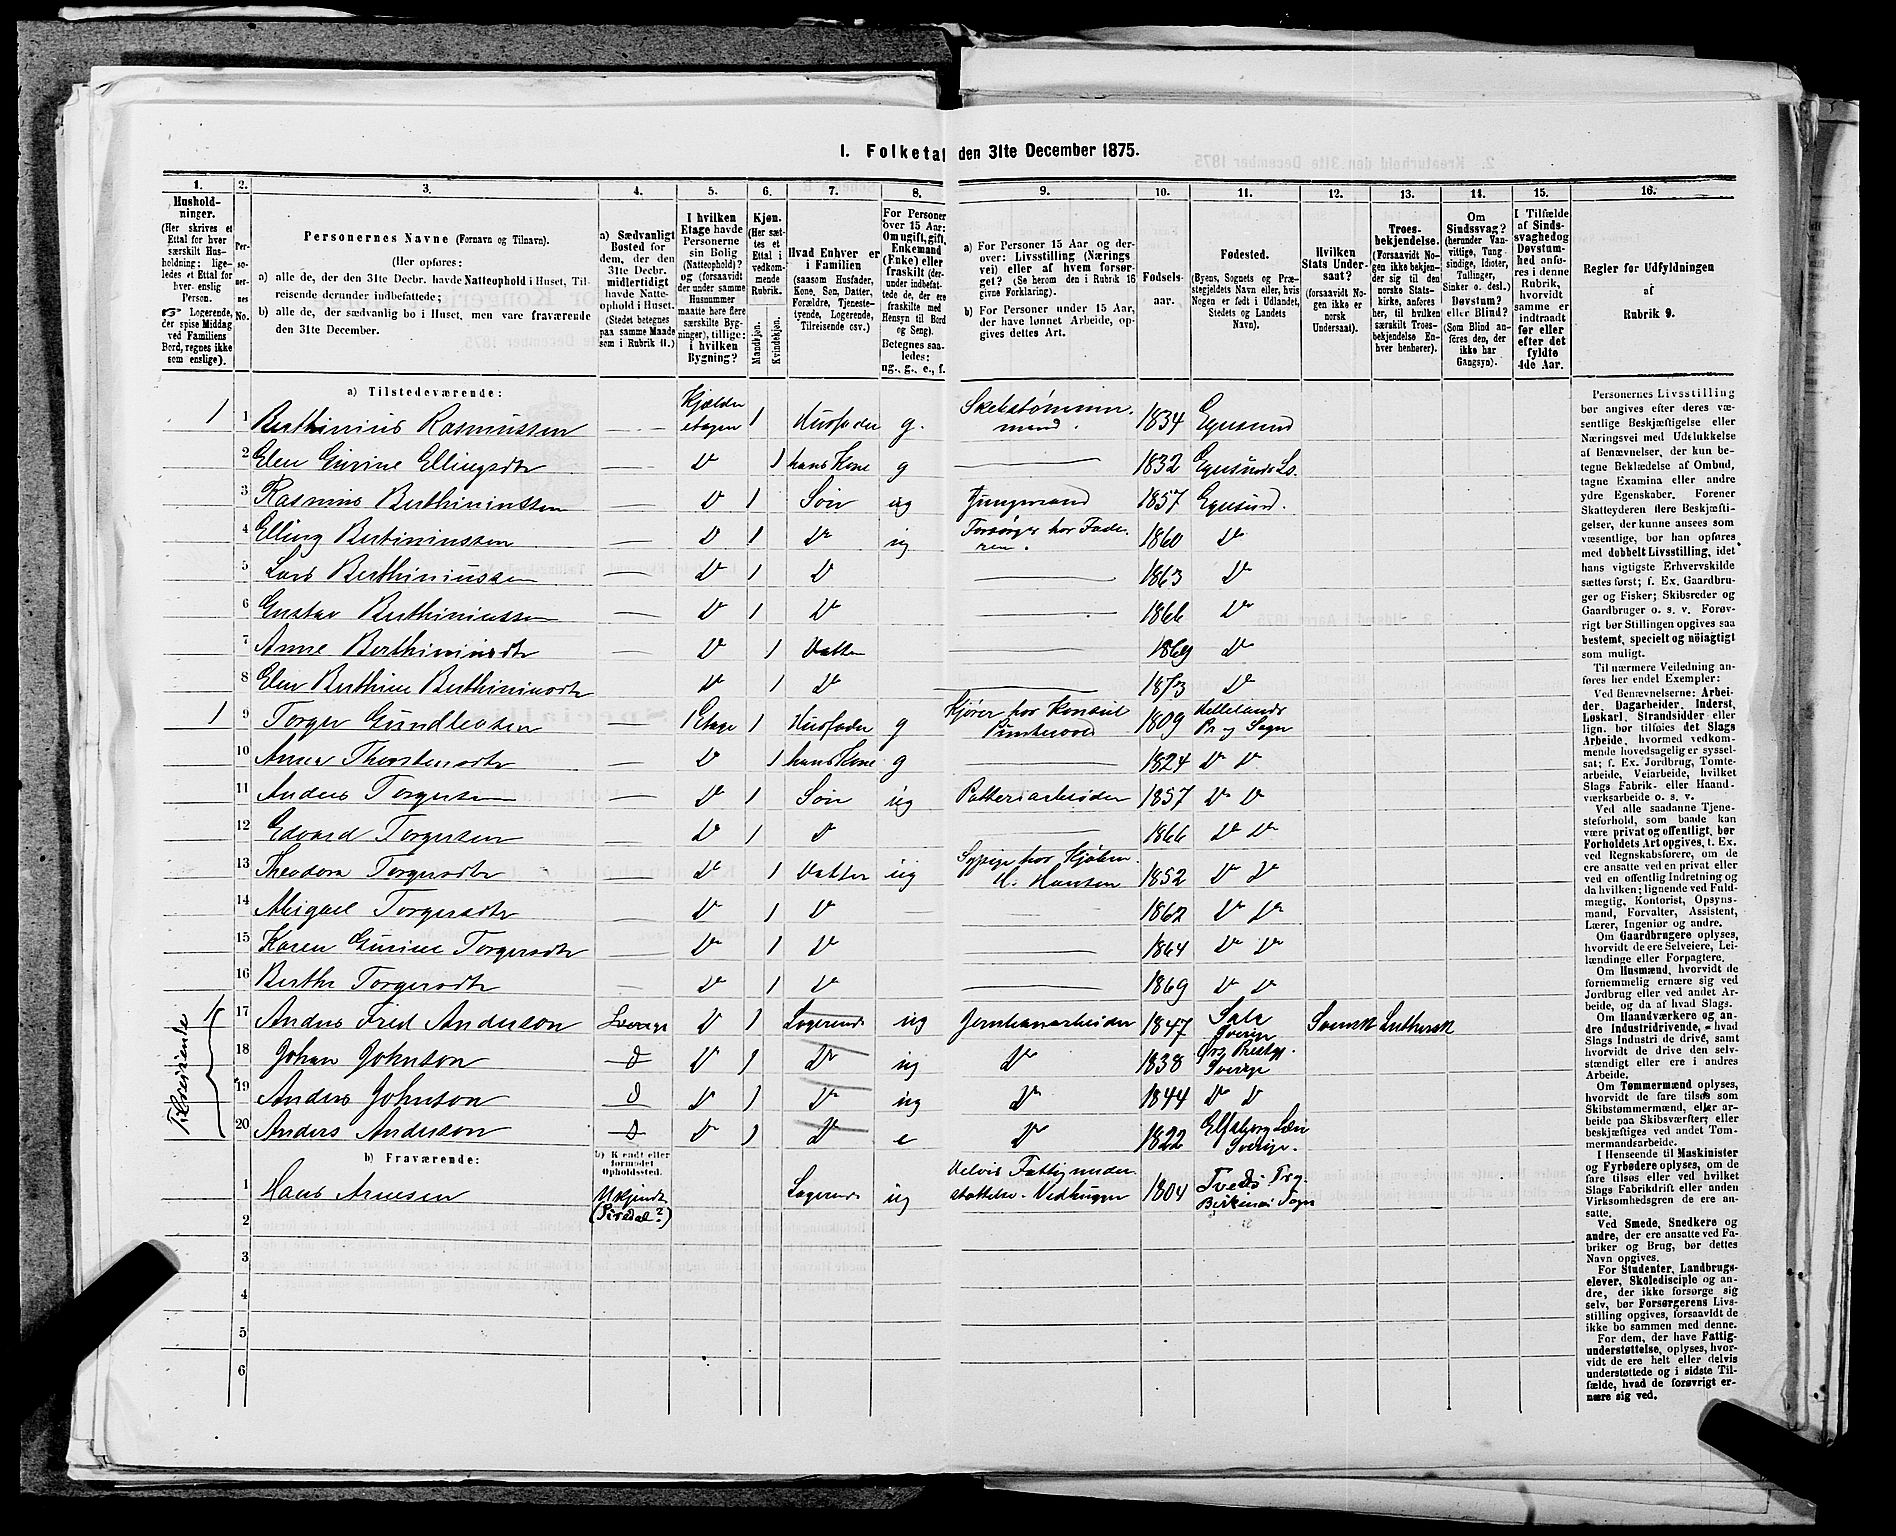 1. Folketal den 31te December 1875.
1. 2. 3. 4. 5. 6. 7. 8. 9. 10. 11. 12. 13. 14. 15. 16.
Hushold-
ninger.
(Her skrives et
Ettal for hver
særskilt Hus-
holdning; lige-
ledes et Ettal for
hver. enslig
Person.
☞ Logerende,
der spise Middag
ved Familiens
Bord, regnes ikke
som enslige).
Per-
so-
ner-
nes
No.
Personernes Navne (Fornavn og Tilnavn).
(Her opføres:
a) alle de, der den 31te Decbr. havde Natteophold i Huset, Til-
reisende derunder indbefattede;
b) alle de, der sædvanlig bo i Huset, men vare fraværende
den 31te December.
a) Sædvanligt
Bosted for
dem, der den
31te Decbr.
midlertidigt
havde Natte-
ophold i Huset
(Stedet betegnes
paa samme Maade
som i Rubrik 11.)
I hvilken
Etage havde
Personerne
sin Bolig
(Natteophold)?
og (forsaavidt
der under samme
Husnummer
maatte høre flere
særskilte Byg-
ninger), tillige:
i hvilken
Bygning?
Kjøn.
(Her sæt-
tes et
Ettal i
vedkom-
mende
Rubrik.
Mandkjøn.
Kvindekjøn.
Hvad Enhver er
i Familien
(saasom Husfader,
Kone, Søn, Datter,
Forældre, Tjeneste-
tyende, Logerende,
Tilreisende csv.)
For Personer
over 15 Aar:
Om ugift, gift,
Enkemand
(Enke) eller
fraskilt (der-
under indbefat-
tede de, der ere
fraskilte med
Hensyn til Bord
og Seng).
Betegnes saa-
ledes:
ug., g., e., f.
a) For Personer 15 Aar og der-
over: Livsstilling (Nærings
vei) eller af hvem forsør-
get? (Se herom den i Rubrik 16
givne Forklaring).
b) For Personer under 15 Aar,
der have lønnet Arbeide, op-
gives dettes Art.
Fødsels-
aar.
Fødested.
(Byens, Sognets og Præ-
stegjeldets Navn eller, hvis
Nogen er født i Udlandet,
Stedets og Landets
Navn).
Hvilken
Stats Under-
saat?
(forsaavidt No-
gen ikke er
norsk
Undersaat).
Troes-
bekjendelse.
(Forsaavidt No-
gen ikke bekjen-
der sig til den
norske Stats-
kirke, anføres
her, til hvilken
særskilt Troes-
bekjendelse En-
hver henhører).
Om
Sindssvag?
(herunder Van-
vittige, Tung-
sindige, Idioter,
Tullinger,
Sinker o. desl.)
Døvstum?
eller Blind?
(Som Blind an-
føres den, der
ikke har
Gangsyn).
I Tilfælde
af Sinds-
svaghed og
Døvstum-
hed anfø-
res i denne
Rubrik,
hvorvidt
samme er
indtraadt
før eller
efter det
fyldte
4de Aar.
Regler før Udfyldningen
af
Rubrik 9.
a) Tilstedeværende:
1 1 Berthinius Rasmussen Kjælder etagen 1 Husfader g. Skibstømmer-mand. 1834 Egersund
2 Elen Gurine Ellingsdtr — D 1 hans Kone g — 1832 Egersunds Ls.
3 Rasmus Berthiniussen — D 1 Søn ug Jungmand 1857 Egersund.
4 Elling Bertiniussen — D 1 Do ug Forsørges hos Fade-ren. 1860 Do
5 Lars Berthiniussen — D 1 D — 1863 D
6 Gustav Berthiniussen — D 1 D — 1866 Do
7 Anne Berthiniusdtr — D 1 Datter 1869 D
8 Elen Berthine Berthiniusdtr — D 1 D — 1873 D
1 9 Torger Gundleosen — 1 Etage 1 Husfader g Kjører hos Konsul 1809 Hellelands Pr og Sogn
10 Anna Thorstensdtr — D 1 hans Kone g 1824 D D
11 Anders Torgersen — D 1 Søn ug Potteriarbeider 1857 D D
12 Edvard Torgersen D 1 D — 1866 D D
13 Theodora Torgersdtr — D 1 Datter ug Sypige hos Kjøbm. H. Hansen 1852 D D
14 Abigael Torgersdtr — D 1 D — — 1862 D D
15 Karen Gurine Torgersdtr — D 1 D — 1864 D D
16 Berthe Torgersdtr — D 1 D — 1869 D D
Tilreisende
1 17 Anders Fred Anderson Sverige D 1 Logerende ug Jernbanarbeider 1847 Sverige Svensk Luthersk
18 Johan Johnson D D 1 D ug D 1838 Sverige
19 Anders Johnson D D 1 D ug D 1844 D D
20 Anders Anderson D D 1 D e D 1822 Elfsborg Læn Sverige.
b) Fraværende:
b) Kendt eller
formodet
Opholdssted.
1 Hans Arnesen Ukjendt (Sirdal?) Logerende ug Delvis Fattigunder-støttelse. Vedhugger 1804 Tveds Prg. Birkenes Sogn
2
3
4
5
6
Personernes Livsstilling
bør angives efter deres væ-
sentlige Beskjæftigelse eller
Næringsvei med Udelukkelse
af Benævnelser, der kun be-
tegne Beklædelse af Ombud,
tagne Examina eller andre
ydre Egenskaber. Forener
Skatteyderen flere Beskjæfti-
gelser, der kunne ansees som
væsentlige, bør han opføres
med dobbelt Livsstilling, idet
hans vigtigste Erhvervskilde
sættes først; f. Ex. Gaardbru-
ger og Fisker; Skibsreder og
Gaardbruger o. s. v. Forøv-
rigt bør Stillingen opgives saa
bestemt, specielt og nöiagtigt
som muligt.
Til nærmere Veiledning an-
føres her endel Exempler:
Ved Benævnelserne: Arbei-
der, Dagarbeider, Inderst,
Løskarl, Strandsidder eller
lign. bør tilføies det Slags
Arbeide, hvormed vedkom-
mende hovedsagelig er syssel-
sat; f. Ex. Jordbrug, Tomte-
arbeide, Veiarbeide, hvilket
Slags Fabrik- eller Haand-
værksarbeide o. s. v.
Ved alle saadanne Tjene-
steforhold, som baade kan
være privat og offentligt, bør
Forholdets Art opgives, t. Ex.
ved Regnskabsførere, om de
ere ansatte ved en privat eller
ved en offentlig Indretning og
da hvilken; lignende ved Fuld-
mægtig, Kontorist, Opsyns-
mand, Forvalter, Assistent,
Lærer, Ingeniør og andre.
Om Gaardbrugere oplyses,
hvorvidt de ere Selveiere, Lei-
lændinge eller Forpagtere.
Om Husmænd, hvorvidt de
fornemmelig ernære sig ved
Jordbrug eller ved andet Ar-
beide, og da af hvad Slags.
Om Haandværkere og an-
dre Industridrivende, hvad
Slags Industri de drive, samt
hvorvidt de drive den selv-
stændigt eller ere i andres
Arbeide.
Om Tømmermænd oplyses,
hvorvidt de fare tilsøs som
Skibstømmermænd, eller ar-
beide paa Skibsværfter, eller
beskjæftiges ved andet Tøm-
mermandsarbeide.
I Henseende til Maskinister
og Fyrbødere oplyses, om de
fare tilsøs eller ved hvilket
Slags Fabrikdrift eller anden
Virksomhedsgren de ere an-
satte.
Ved Smede, Snedkere og
andre, der ere ansatte ved Fa-
briker og Brug, bør dettes
Navn opgives.
For Studenter, Landbrugs-
elever, Skoledisciple og an-
dre, der ikke forsørge sig
selv, bør Forsørgerens Livs-
stilling opgives, forsaavidt de
ikke bo sammen med denne.
For dem, der have Fattig-
understøttelse, oplyses, hvor-
vidt de ere helt eller delvis
understøttede og i sidste Til-
fælde, hvad de forøvrigt er-
nære sig ved.